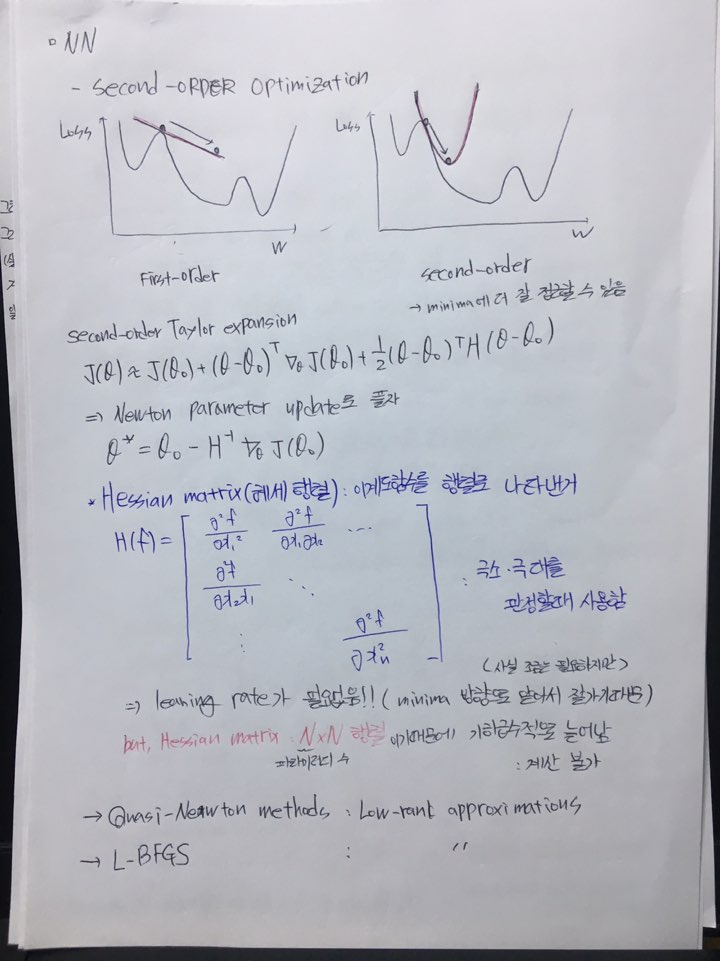 ▫ NN
- Second-ORDER Optimization
Loss
W
First-order
Loss
W
second-order
→ minima에 더 잘 접근할 수 있음
second-order Taylor expansion
J(θ) ≈ J(θ₀) + (θ-θ₀)ᵀ ∇θ J(θ₀) + ½(θ-θ₀)ᵀ H (θ-θ₀)
⇒ Newton parameter update로 풀자
θ* = θ₀ - H⁻¹ ∇θ J(θ₀)
* Hessian matrix(헤세 행렬) : 이계도함수를 행렬로 나타낸거
H(f) = [ ∂²f/∂x₁² ∂²f/∂x₁∂x₂ ⋯
∂²f/∂x₂x₁ ⋱
⋮ ∂²f/∂x²n ]
: 극소·극대를
판정할때 사용함
(사실 조금은 필요하지만)
⇒ learning rate가 필요없음!! (minima 방향으로 알아서 잘가기때문)
but, Hessian matrix : N×N 행렬 이기때문에 기하급수적으로 늘어남
파라미터 수
: 계산 불가
→ Quasi-Newton methods : Low-rank approximations
→ L-BFGS : 〃